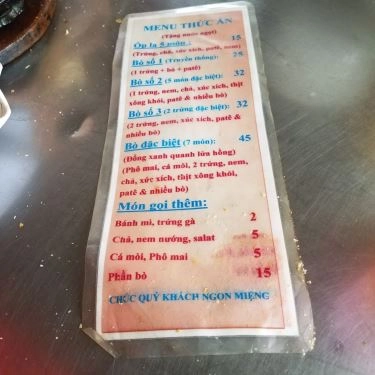 MENU THỨC ĂN
(Tặng nước ngọt)
Ốp la 5 món : 15
(Trứng, chả, xúc xích, patê, nem)
Bò số 1 (Truyền thống): 25
(1 trứng + bò + patê)
Bò số 2 (5 món đặc biệt): 32
(1 trứng, nem, chả, xúc xích, thịt
xông khói, patê & nhiều bò)
Bò số 3 (2 trứng đặc biệt): 32
(2 trứng, nem, xúc xích, patê &
nhiều bò)
Bò đặc biệt (7 món): 45
(Đồng xanh quanh lửa hồng)
(Phô mai, cá mòi, 2 trứng, nem,
chả, xúc xích, thịt xông khói,
patê & nhiều bò)
Món gọi thêm:
Bánh mì, trứng gà 2
Chả, nem nướng, salat 5
Cá mòi, Phô mai 5
Phần bò 15
CHÚC QUÝ KHÁCH NGON MIỆNG